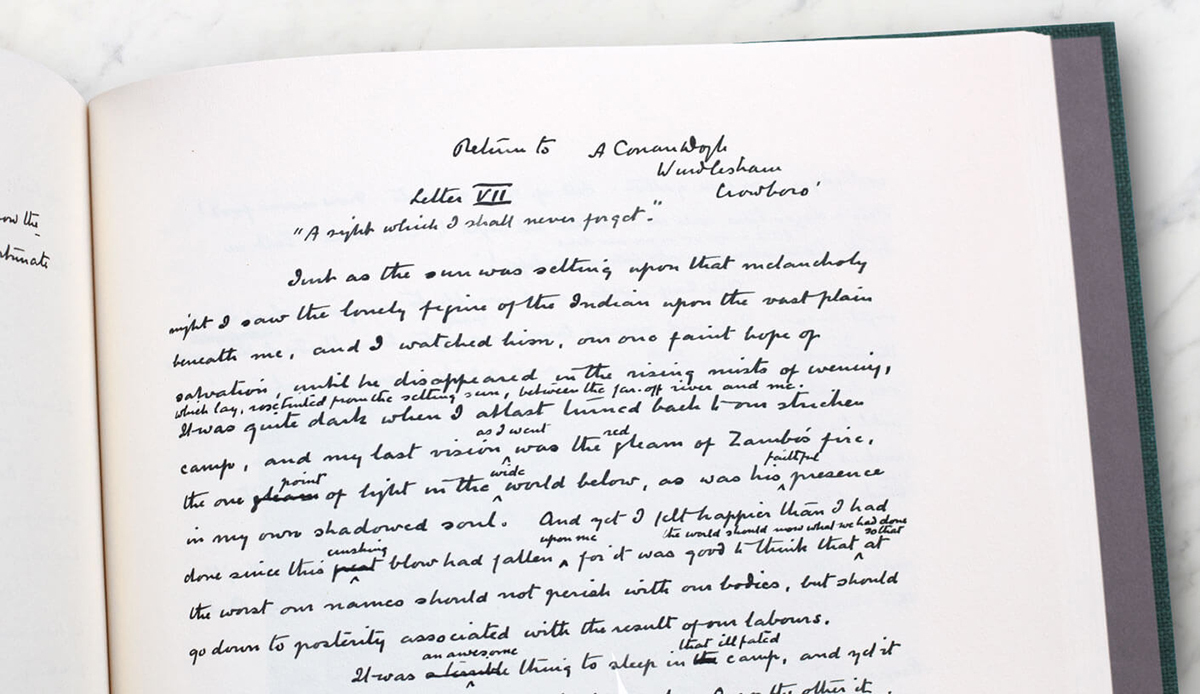 ow the
rtunate
Return to A Conan Doyle
Windlesham
Crowboro'
Letter VII
"A sight which I shall never forget."
Just as the sun was setting upon that melancholy
night I saw the lonely figure of the Indian upon the vast plain
beneath me, and I watched him, our one faint hope of
salvation, until he disappeared in the rising mists of evening,
which lay, rose tinted from the setting sun, between the far-off river and me.
It was quite dark when I at last turned back to our stricken
as I went red
camp, and my last vision was the gleam of Zambo's fire,
point wide faithful
the one gleam of light in the world below, as was his presence
in my own shadowed soul. And yet I felt happier than I had
crushing upon me the world should know what we had done so that
done since this great blow had fallen, for it was good to think that at
the worst our names should not perish with our bodies, but should
go down to posterity associated with the result of our labours.
an awesome that ill fated
It was a terrible thing to sleep in the camp, and yet it
the other it